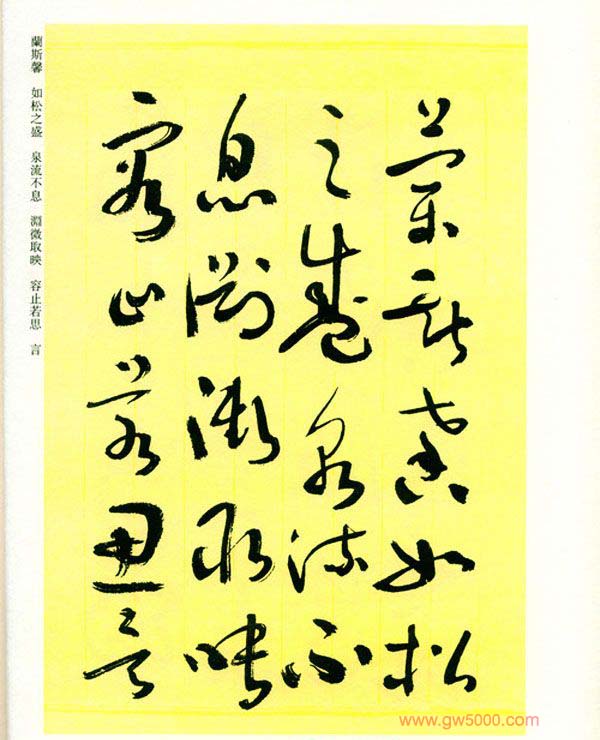 蘭斯馨如松
之盛泉流不
息淵微取映
容止若思言
蘭斯馨 如松之盛 泉流不息 淵微取映 容止若思 言
www.gw5000.com